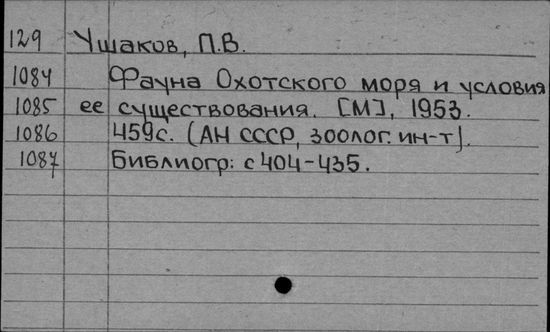 129 Ушаков, П.В.
1084 Фауна Охотского моря и условия
1085 ее существования. [М], 1953.
1086 459с. (АН СССР, зоолог. ин-т).
1087 Библиогр: с 404-435.